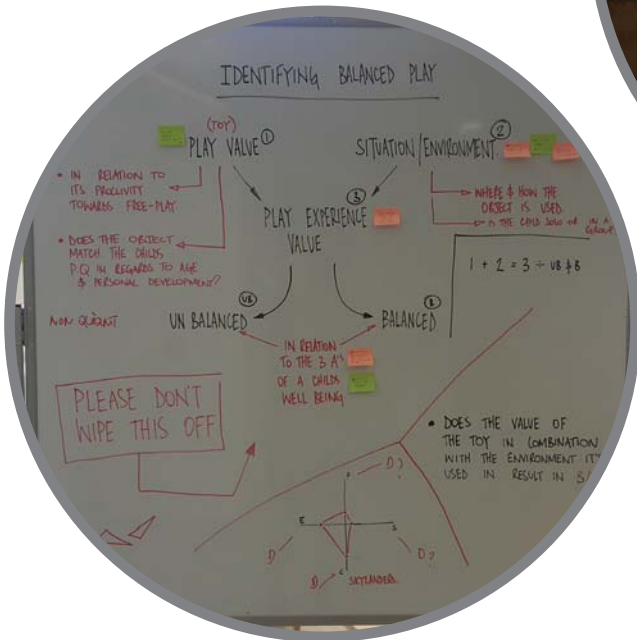 IDENTIFYING BALANCED PLAY
(TOY)
PLAY VALUE ①
SITUATION/ENVIRONMENT. ②
• IN RELATION TO
ITS PROCLIVITY
TOWARDS FREE-PLAY.
• DOES THE OBJECT
MATCH THE CHILDS
P.Q IN REGARDS TO AGE
& PERSONAL DEVELOPMENT?
③
PLAY EXPERIENCE
VALUE
WHERE & HOW THE
OBJECT IS USED.
IS THE CHILD SOLO OR IN A
GROUP
1 + 2 = 3 ÷ UB & B
NON
UB
UN BALANCED
B
BALANCED
IN RELATION
TO THE 3 A'S
OF A CHILDS
WELL BEING
PLEASE DON'T
WIPE THIS OFF
• DOES THE VALUE OF
THE TOY IN COMBINATION
WITH THE ENVIRONMENT IT'
USED IN RESULT IN
D?
E
S
D
D?
D
C
SKYLANDERS